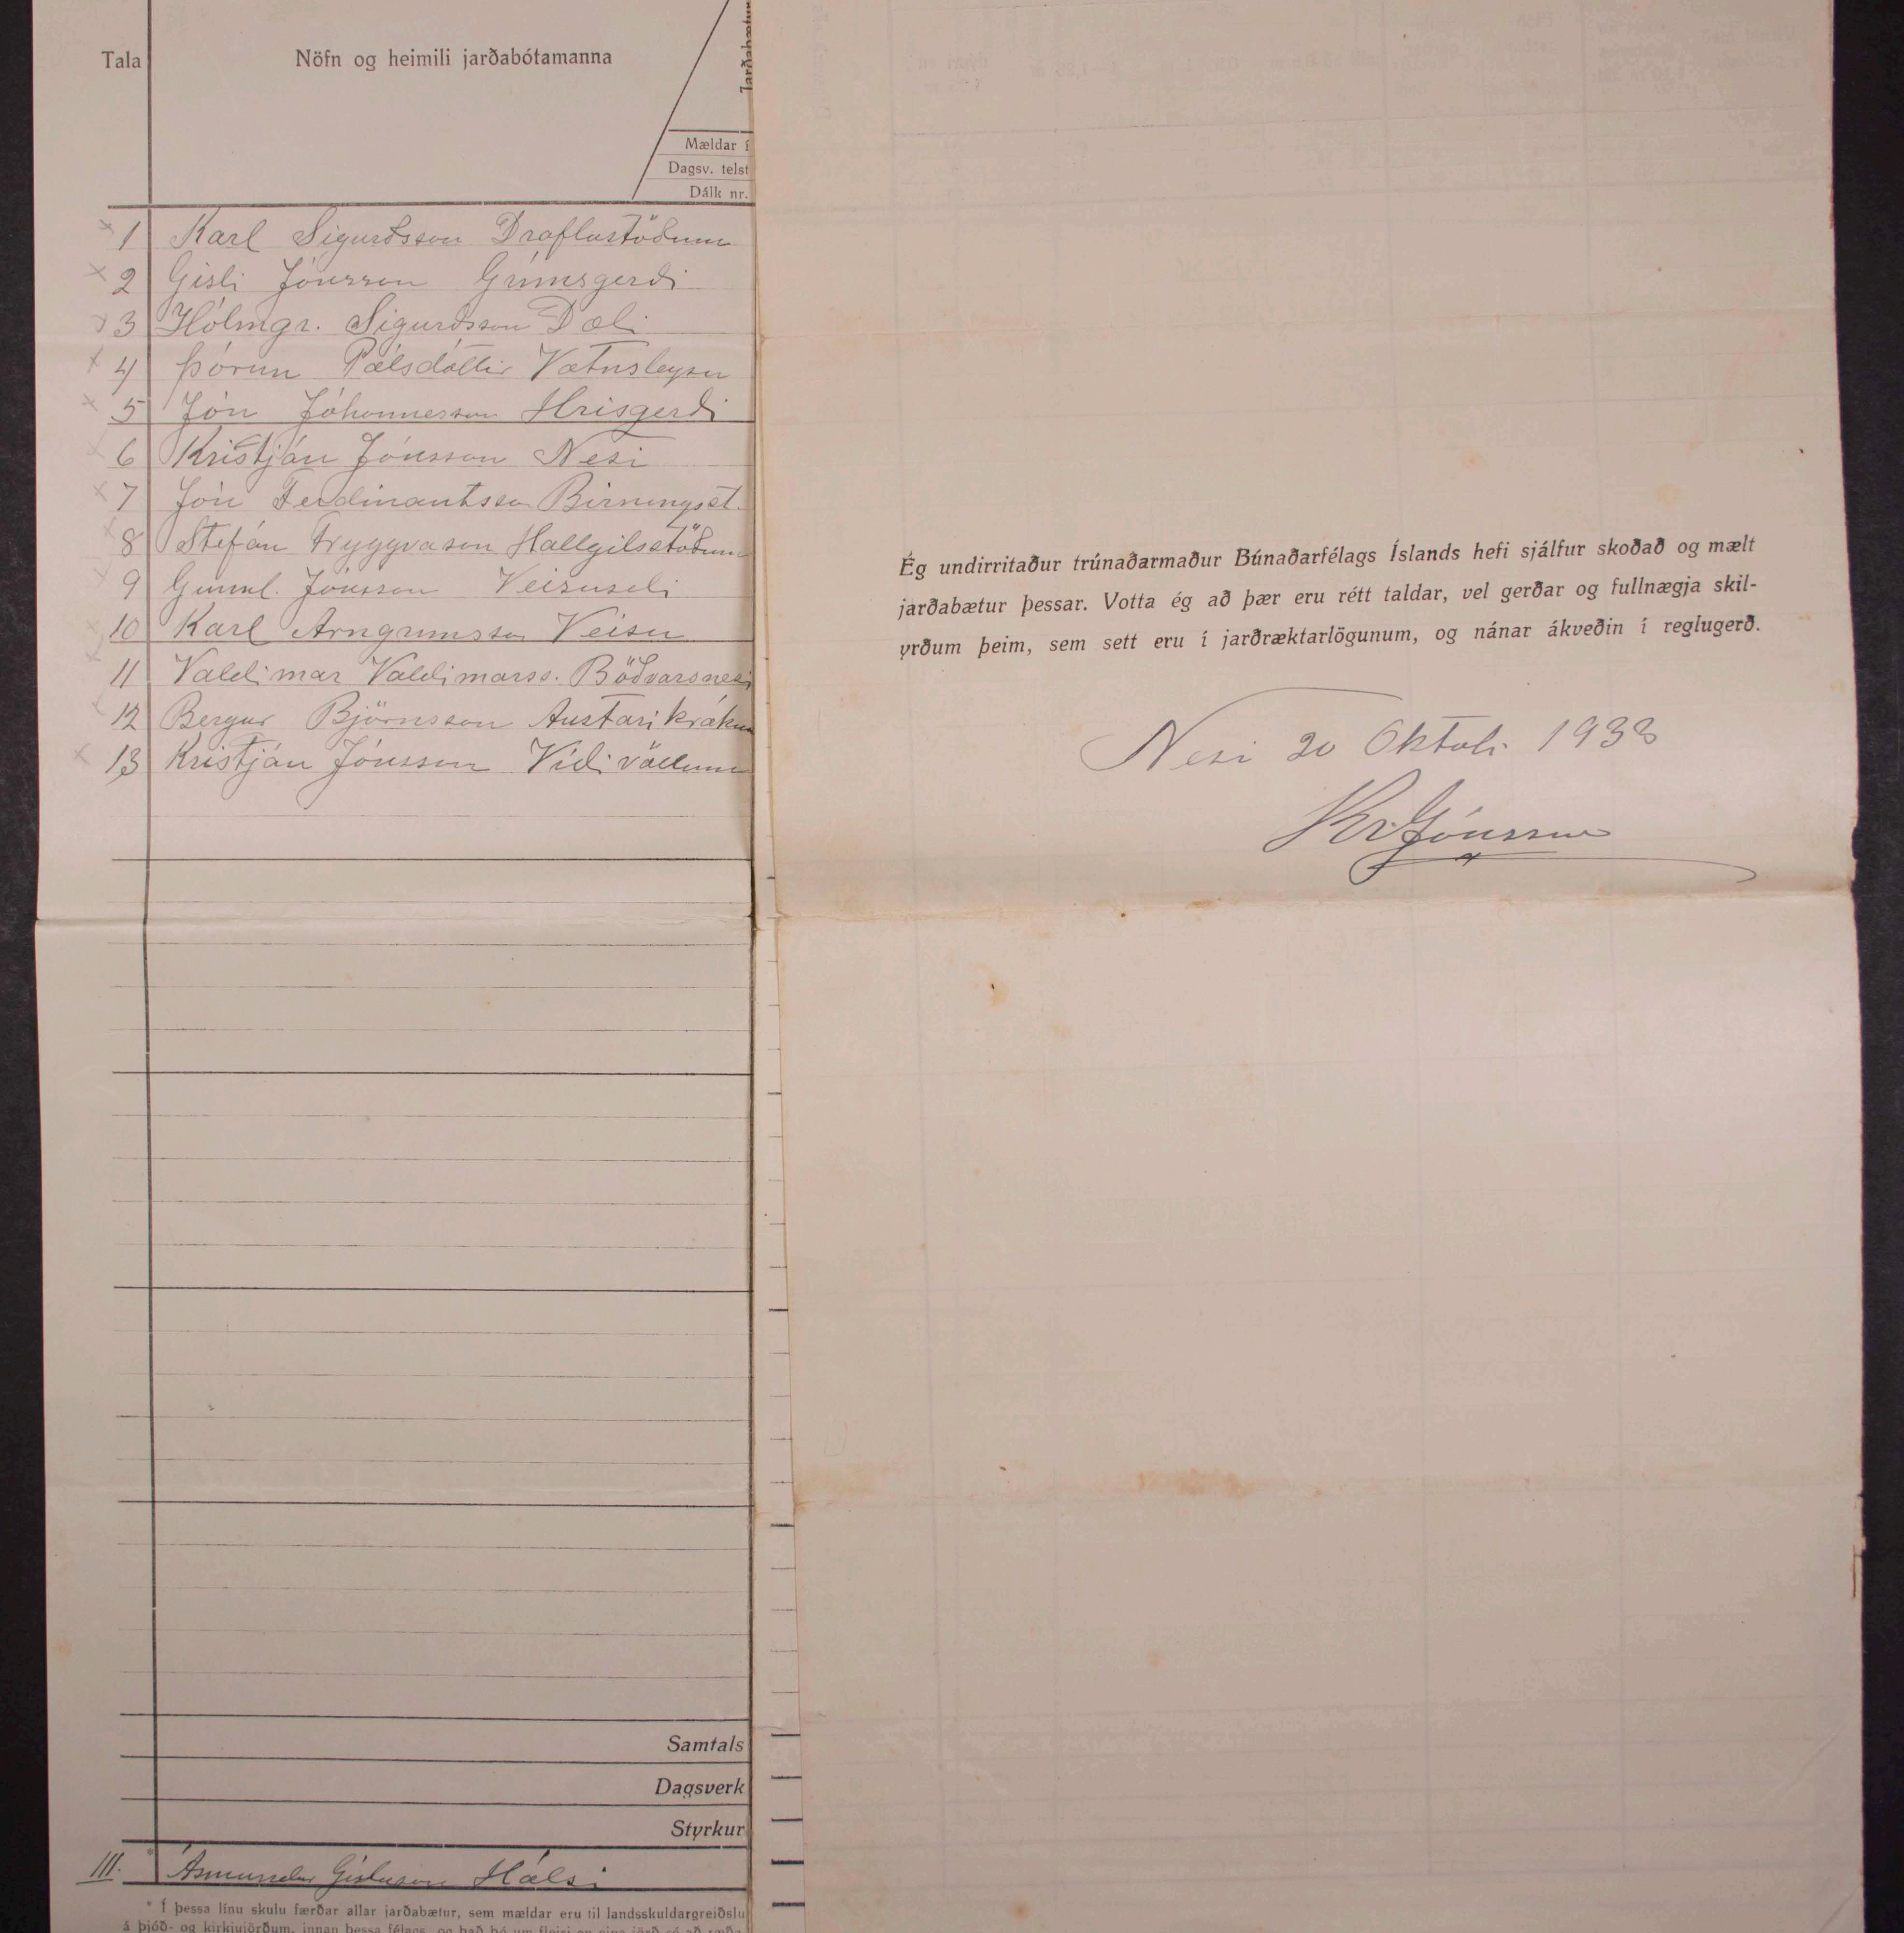 Jarðabætur
Tala
Nöfn og heimili jarðabótamanna
Mældar í
Dagsv. telst
Dálk nr.
1 Karl Sigurðsson Draflastöðum
2 Gísli Jónsson Grímsgerði
3 Hólmgr. Sigurðsson Dæli
4 Þórunn Pálsdóttir Vatnsleysu
5 Jón Jóhannesson Hrísgerði
6 Kristján Jónsson Nesi
7 Jón Ferdinantsson Birningsst.
8 Stefán Tryggvason Hallgilsstöðum
9 Gunnl. Jónsson Veisuseli
10 Karl Arngrímsson Veisu
11 Valdimar Valdimarss. Böðvarsnesi
12 Bergur Björnsson Austarikrókum
13 Kristján Jónsson Víðivöllum
Samtals
Dagsverk
Styrkur
III. Ásmundur Gíslason Hálsi
* Í þessa línu skulu færðar allar jarðabætur, sem mældar eru til landsskuldargreiðslu
á þjóð- og kirkjujörðum, innan þessa félags, og það þó um fleiri en eina jörð sé að ræða
Ég undirritaður trúnaðarmaður Búnaðarfélags Íslands hefi sjálfur skoðað og mælt
jarðabætur þessar. Votta ég að þær eru rétt taldar, vel gerðar og fullnægja skil-
yrðum þeim, sem sett eru í jarðræktarlögunum, og nánar ákveðin í reglugerð.
Nesi 20 Októb. 1938
Kr. Jónsson